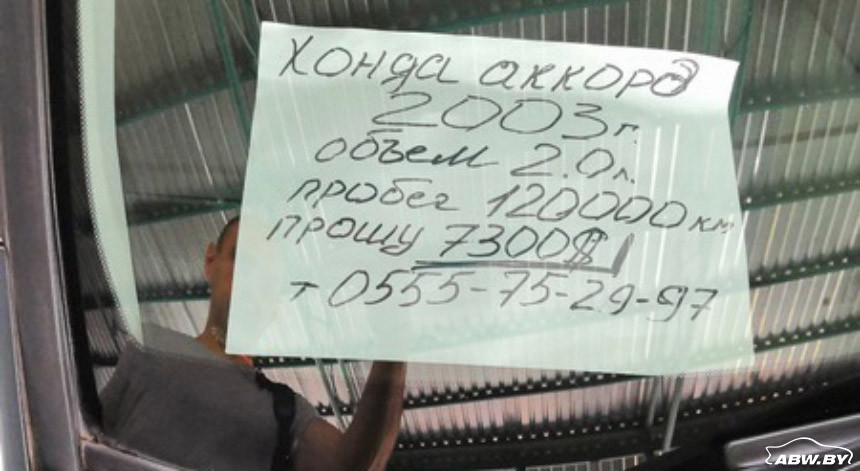 Хонда аккорд
2003г.
объем 2.0л.
пробег 120000км
прошу 7300$
т 0555-75-29-97
ABW.BY